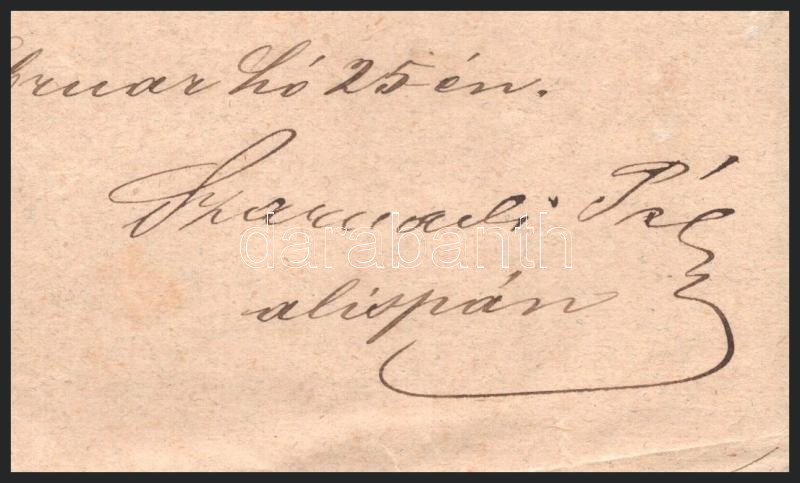 bruar hó 25 én.
Szarvadi Pál
alispán
darabanth